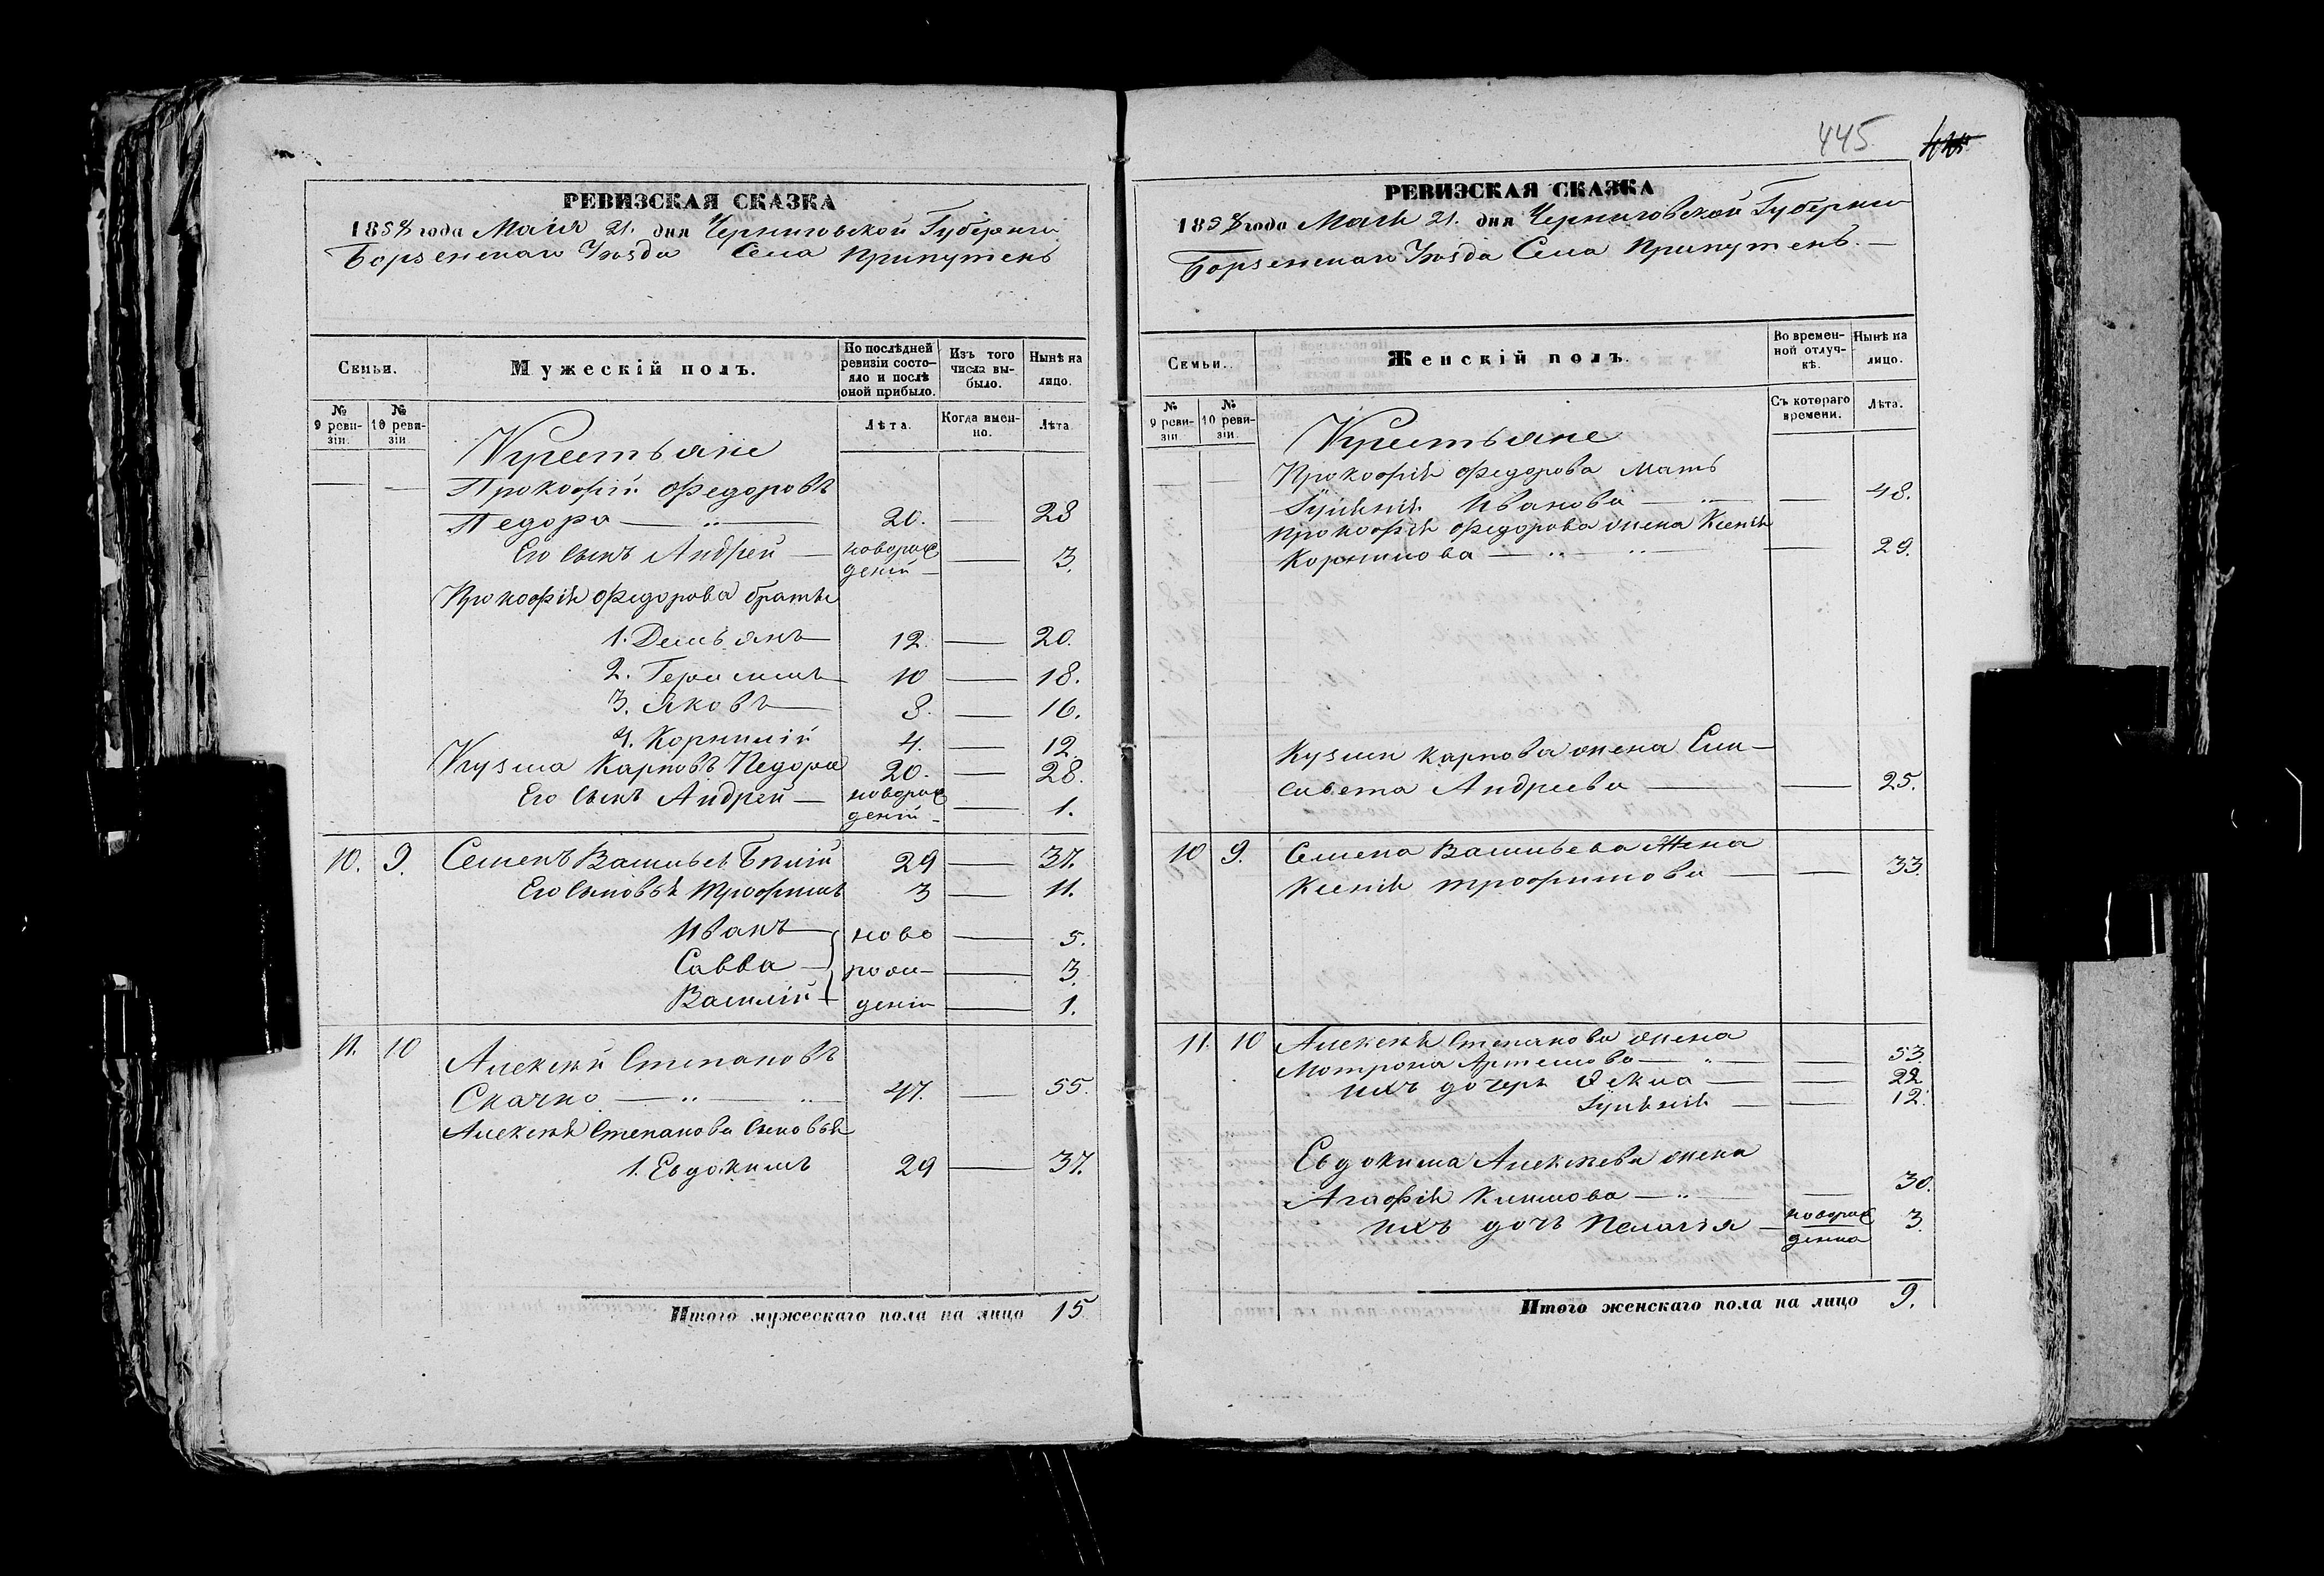 РЕВИЗСКАЯ СКАЗКА
1858 года Маія 21. дня Черниговской Губерніи
Борзенскаго Уѣзда Села Припутень
Семьи.
Мужескій полъ.
По послѣдней ревизіи состояло и послѣ оной прибыло.
Изъ того числа выбыло.
Нынѣ на лицо.
№ 9 ревизіи.
№ 10 ревизіи
Лѣта.
Когда именно.
Лѣта
Крестьяне
— — Прокофій Федоровъ
Педора — „ — 20. — 28
Его сынъ Андрей — новорожденій — 3.
Прокофія Федорова братья
1. Демьянъ — 12. — 20.
2. Герасимъ — 10 — 18.
3. Яковъ — 8. — 16.
4. Корнилій 4. — 12
Кузма Карповъ Педора 20. — 28.
Его сынъ Андрей — новорожденій — 1.
10. 9. Семенъ Васильев Билій 29 — 37.
Его сыновья Трофимъ 3 — 11.
Иванъ — ново — 5.
Савва — рож — 3.
Василій — деній — 1.
11. 10 Алексей Степановъ
Скачко — „ — „ 47. — 55.
Алексея Степанова сыновья
1. Евдокимъ 29 — 37.
Итого мужескаго пола на лицо 15
445
РЕВИЗСКАЯ СКАЗКА
1858 года Маія 21. дня Черниговской Губерніи
Борзенскаго Уѣзда Села Припутень. —
Семьи.
Женскій полъ.
Во временной отлучкѣ.
Нынѣ на лицо.
№ 9 ревизіи
№ 10 ревизіи.
Съ котораго времени.
Лѣта.
Крестьяне
— — Прокофія Федорова мать
Иванова — „ — — 48.
Прокофія Федорова жена Ксенія
Корнилова — „ „ — — 29.
Кузми Карпова жена Ели-
савета Андреева — — 25.
10 9. Семена Васильева Жена
Ксенія Трофимова — — 33.
11. 10 Алексея Степанова жена
Мотрона Артемова — „ — — 53.
ихъ дочери — — 22
— — 12.
Евдокима Алексеева жена
Агафія Климова — „ — — 30.
ихъ дочь Пелагѣя — новорожденна 3.
Итого женскаго пола на лицо 9.